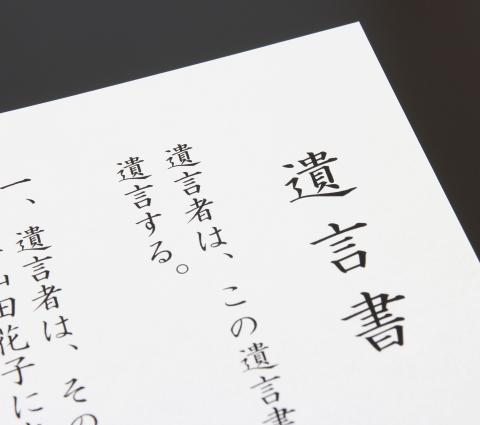 遺言書
遺言者は、この遺言書
遺言する。
一、遺言者は、その
山田花子に